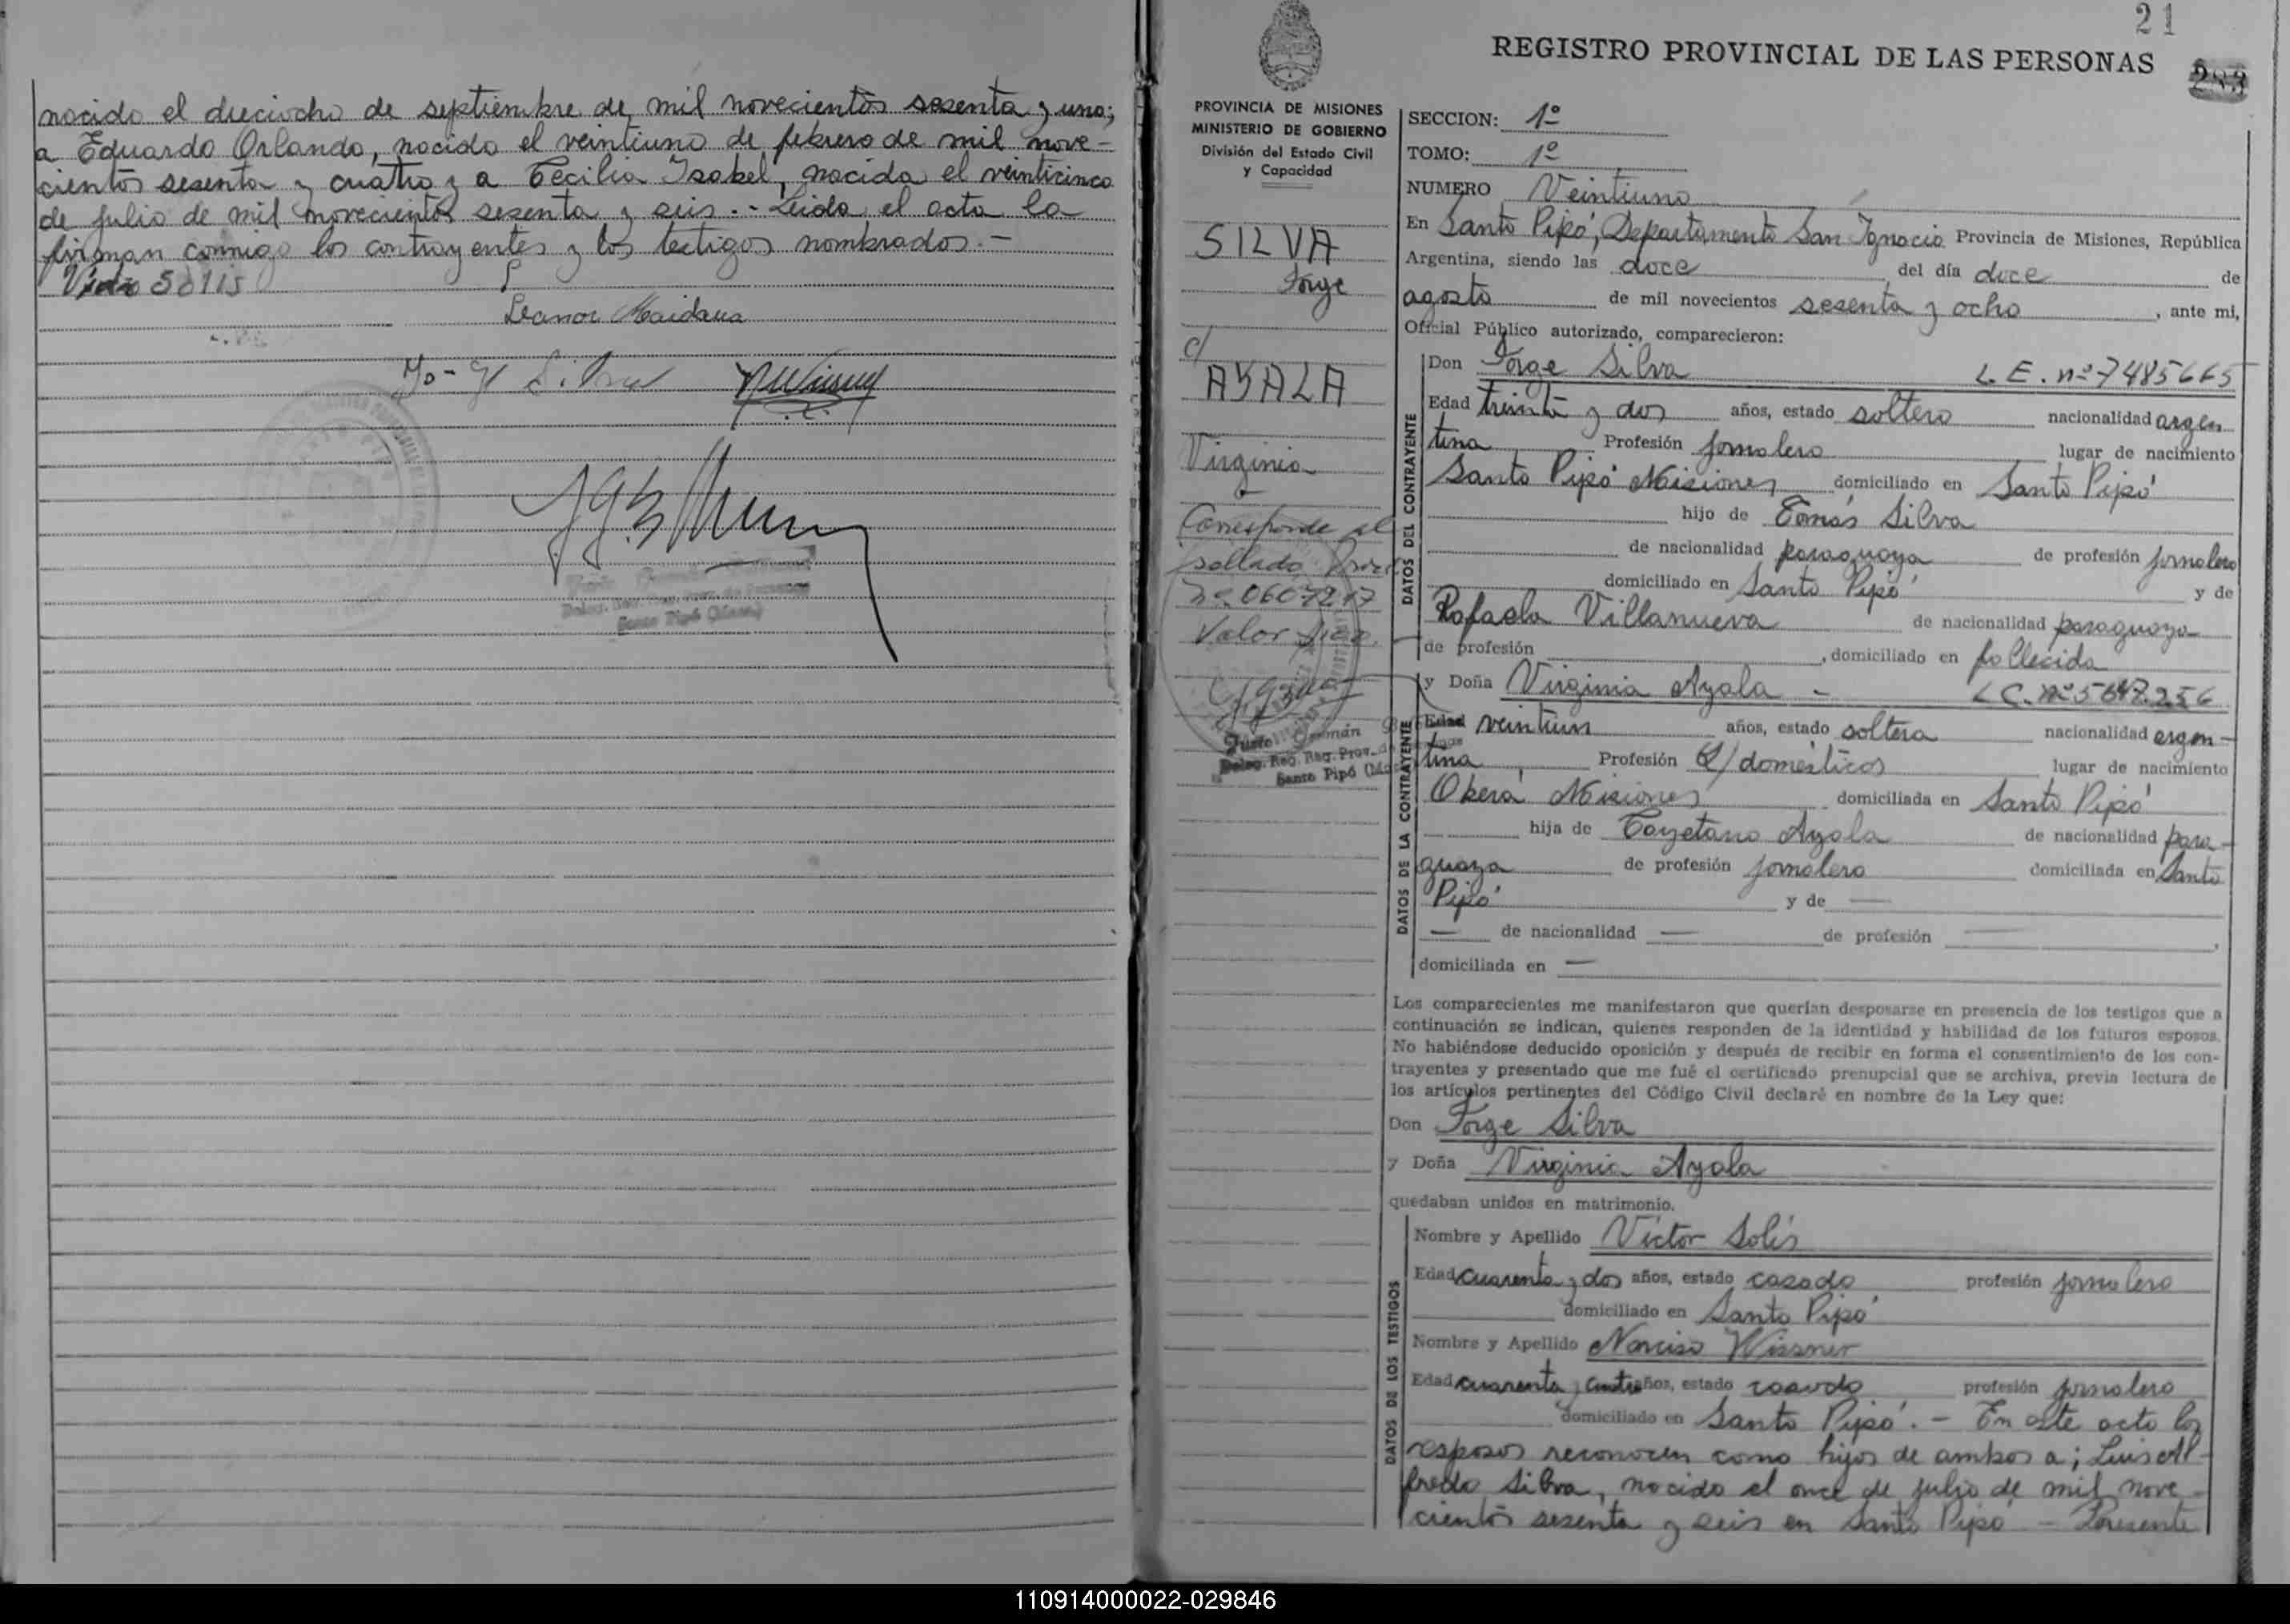 nacido el dieciocho de septiembre de mil novecientos sesenta y uno;
a Eduardo Orlando, nacido el veintiuno de febrero de mil nove-
cientos sesenta y cuatro y a Cecilia Isabel, nacida el veinticinco
de julio de mil novecientos sesenta y seis.- Leida el acta la
firman conmigo los contrayentes y los testigos nombrados.-
Solis
Leanor Maidana
Santo Pipó
21
REGISTRO PROVINCIAL DE LAS PERSONAS
283
PROVINCIA DE MISIONES
MINISTERIO DE GOBIERNO
División del Estado Civil
y Capacidad
SILVA
Jorge
c/
AYALA
Virginia
Corresponde al
sellado
Nº 0607217
Valor
Justo Germán
Deleg. Reg. Prov. de
Santo Pipó
SECCION: 1º
TOMO: 1º
NUMERO Veintiuno
En Santo Pipó, Departamento San Ignacio Provincia de Misiones, República
Argentina, siendo las doce del día doce de
agosto de mil novecientos sesenta y ocho, ante mi,
Oficial Público autorizado, comparecieron:
DATOS DEL CONTRAYENTE
Don Jorge Silva L.E. nº 7485665
Edad treinta y dos años, estado soltero nacionalidad argen
tina Profesión jornalero lugar de nacimiento
Santo Pipó Misiones domiciliado en Santo Pipó
hijo de Tomás Silva
de nacionalidad paraguaya de profesión jornalero
domiciliado en Santo Pipó y de
Rafaela Villanueva de nacionalidad paraguaya
de profesión , domiciliado en fallecida
DATOS DE LA CONTRAYENTE
y Doña Virginia Ayala - L.C. nº 5647.256
Edad veintiun años, estado soltera nacionalidad argen-
tina Profesión Q/domésticos lugar de nacimiento
Oberá Misiones domiciliada en Santo Pipó
hija de Cayetano Ayala de nacionalidad para-
guaya de profesión jornalero domiciliada en Santo
Pipó y de —
— de nacionalidad — de profesión —,
domiciliada en —
Los comparecientes me manifestaron que querían desposarse en presencia de los testigos que a
continuación se indican, quienes responden de la identidad y habilidad de los futuros esposos.
No habiéndose deducido oposición y después de recibir en forma el consentimiento de los con-
trayentes y presentado que me fué el certificado prenupcial que se archiva, previa lectura de
los artículos pertinentes del Código Civil declaré en nombre de la Ley que:
Don Jorge Silva
y Doña Virginia Ayala
quedaban unidos en matrimonio.
DATOS DE LOS TESTIGOS
Nombre y Apellido Victor Solis
Edad cuarenta y dos años, estado casado profesión jornalero
domiciliado en Santo Pipó
Nombre y Apellido Narciso Wissner
Edad cuarenta y cuatro años, estado casado profesión jornalero
domiciliado en Santo Pipó.- En este acto los
esposos reconocen como hijos de ambos a; Luis Al-
fredo Silva, nacido el once de julio de mil nove-
cientos sesenta y seis en Santo Pipó - Presente
110914000022-029846